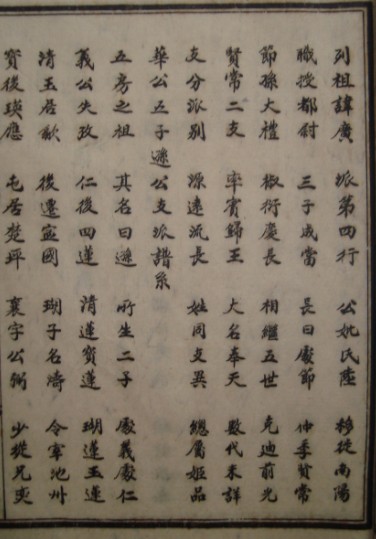 列祖諱廣 派第四行 公妣氏陸 移從南陽
職授都尉 三子咸當 長曰處節 仲季賢常
節孫大禮 椒衍慶長 相繼五世 克迪前光
賢常二支 率賓歸王 大名奉天 數代未詳
支分派別 源遠流長 姓同支異 總屬姬品
華公五子遜公支派譜系
五房之祖 其名曰遜 所生二子 處義處仁
義公失攷 仁後四蓮 清蓮寶蓮 瑚蓮玉蓮
清玉居歙 後遷寧國 瑚子名濤 令宰池州
寶後瑛應 屯居楚坪 襄字公弼 少從兄奭